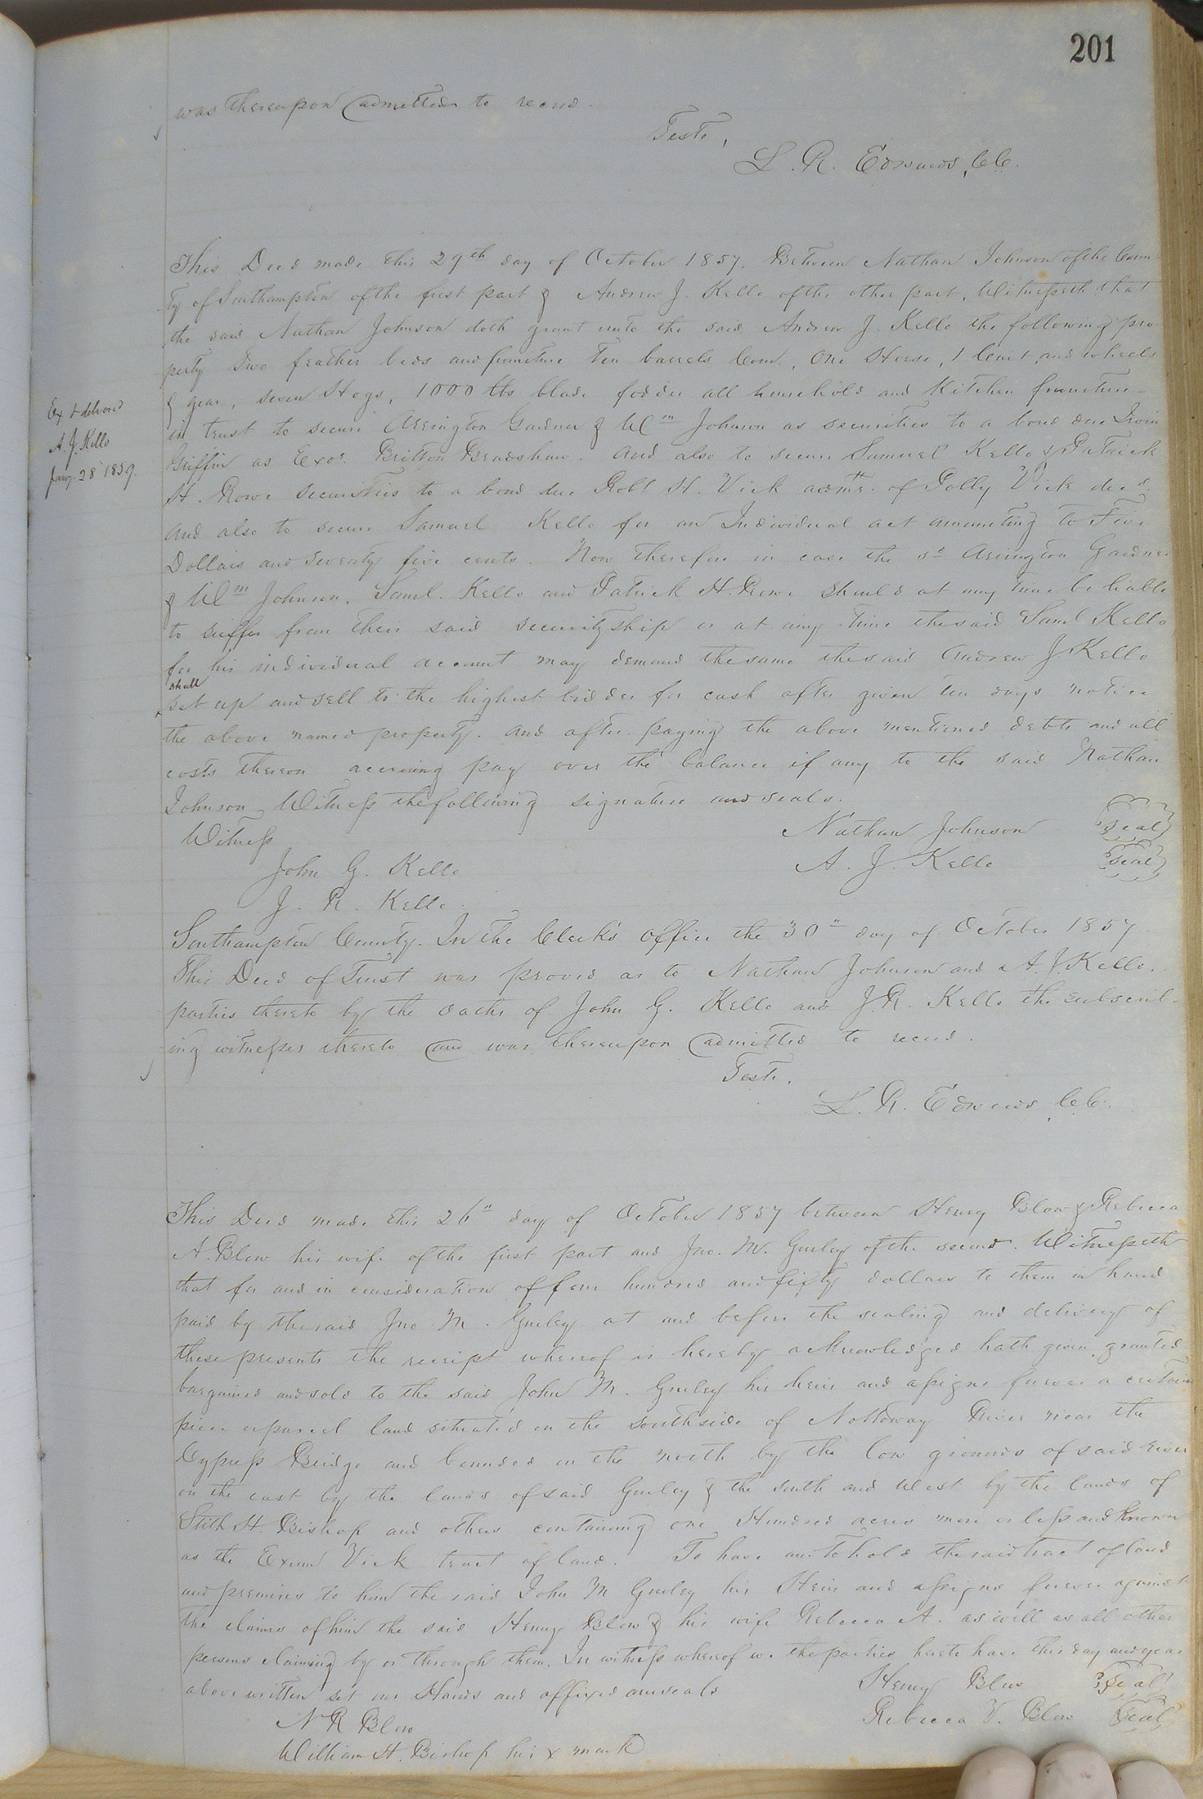 201
was thereupon admitted to record.
Teste,
L. R. Edwards, CC.
This Deed made this 29th day of October 1857, Between Nathan Johnson of the Coun
ty of Southampton of the first part & Andrew J. Kello of the other part, Witnesseth that
the said Nathan Johnson doth grant unto the said Andrew J. Kello the following pro
perty Two feather beds and furniture Ten barrels Corn, One Horse, 1 Cart and wheels
& gear, seven Hogs, 1000 lbs blade fodder all household and Kitchen furniture
in trust to secure Arrington Gardner & Wm Johnson as securities to a bond due
Griffin as Exor. Britton Bradshaw. And also to secure Samuel Kello & Patrick
H. Rowe securities to a bond due Robt H. Vick admr. of Polly Vick decd.
and also to secure Samuel Kello for an Individual act amounting to Five
Dollars and Seventy five cents. Now therefore in case the sd Arrington Gardner
& Wm Johnson, Saml. Kello and Patrick H. Rowe should at any time be liable
to suffer from their said securityship or at any time the said Saml Kello
for his individual account may demand the same the said Andrew J Kello
shall
set up and sell to the highest bidder for cash after given ten days notice
the above named property. and after paying the above mentioned debts and all
costs thereon accruing pay over the balance if any to the said Nathan
Johnson Witness the following signature and seals.
Witness
Nathan Johnson seal
John G. Kello
A. J. Kello seal
J. R. Kello.
Ex. & delivered
A. J. Kello
Jany. 28 1859.
Southampton County. In the Clerk's office the 30th day of October 1857
This Deed of Trust was proved as to Nathan Johnson and A. J. Kello,
parties thereto by the oaths of John G. Kello and J. R. Kello the subscrib-
ing witnesses thereto and was thereupon admitted to record.
Teste,
L. R. Edwards, CC.
This Deed made this 26th day of October 1857 between Henry Blow & Rebecca
A. Blow his wife of the first part and Jno. M. Gurley of the second. Witnesseth
that for and in consideration of four hundred and fifty dollars to them in hand
paid by the said Jno. M. Gurley at and before the sealing and delivery of
these presents the receipt whereof is hereby acknowledged hath given, granted
bargained and sold to the said John M. Gurley his heirs and assigns forever a certain
piece or parcel land situated on the southside of Nottoway River near the
Cypress Bridge and bounded on the north by the low grounds of said river
on the east by the lands of said Gurley & the south and West by the lands of
Stith H. Bishop and others containing one Hundred acres more or less and known
as the Vick tract of land. To have and to hold the said tract of land
and premises to him the said John M Gurley his Heirs and assigns forever against
the claims of him the said Henry Blow & his wife Rebecca A. as well as all other
persons claiming by or through them. In witness whereof we the parties hereto have this day and year
above written set our Hands and affixed our seals
Henry Blow seal
N R Blow
Rebecca Blow seal
William H. Bishop his x mark